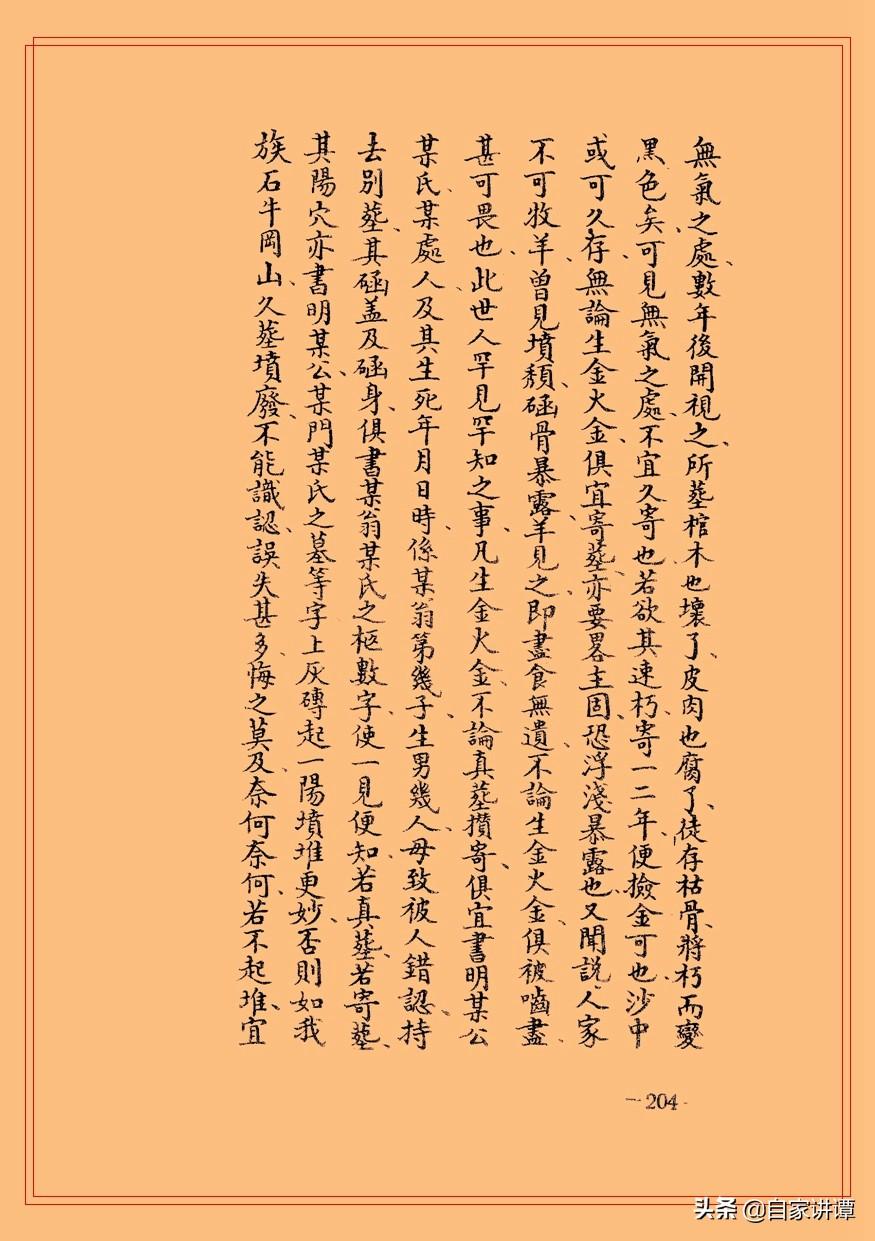 無氣之處、數年後開視之、所塟棺木也壞了、皮肉也腐了、徒存枯骨、將朽而變
黑色矣、可見無氣之處、不宜久寄也、若欲其速朽、寄一二年、便撿金可也、沙中
或可久存、無論生金火金、俱宜寄塟、亦要畧主固、恐浮淺暴露也、又聞説、人家
不可牧羊、曾見墳頹、𥑮骨暴露、羊見之、即盡食無遺、不論生金火金、俱被嚙盡、
甚可畏也、此世人罕見罕知之事、凡生金火金、不論真塟攢寄、俱宜書明某公
某氏、某處人及其生死年月日時、係某翁第幾子、生男幾人、毋致被人錯認、持
去別塟、其𥑮盖及𥑮身、俱書某翁某氏之柩數字、使一見便知、若真塟、若寄塟、
其陽穴亦書明某公、某門某氏之墓等字、上灰磚起一陽墳堆更妙、否則如我
族石牛岡山、久塟墳廢、不能識認、誤失甚多、悔之莫及、奈何奈何、若不起堆、宜
-204-
头条 @自家讲谭